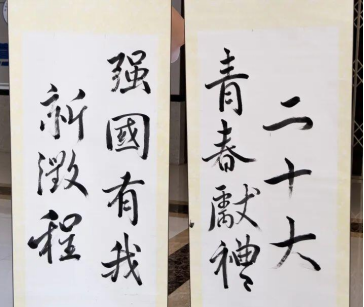 二十大
青春獻禮
强國有我
新徵程